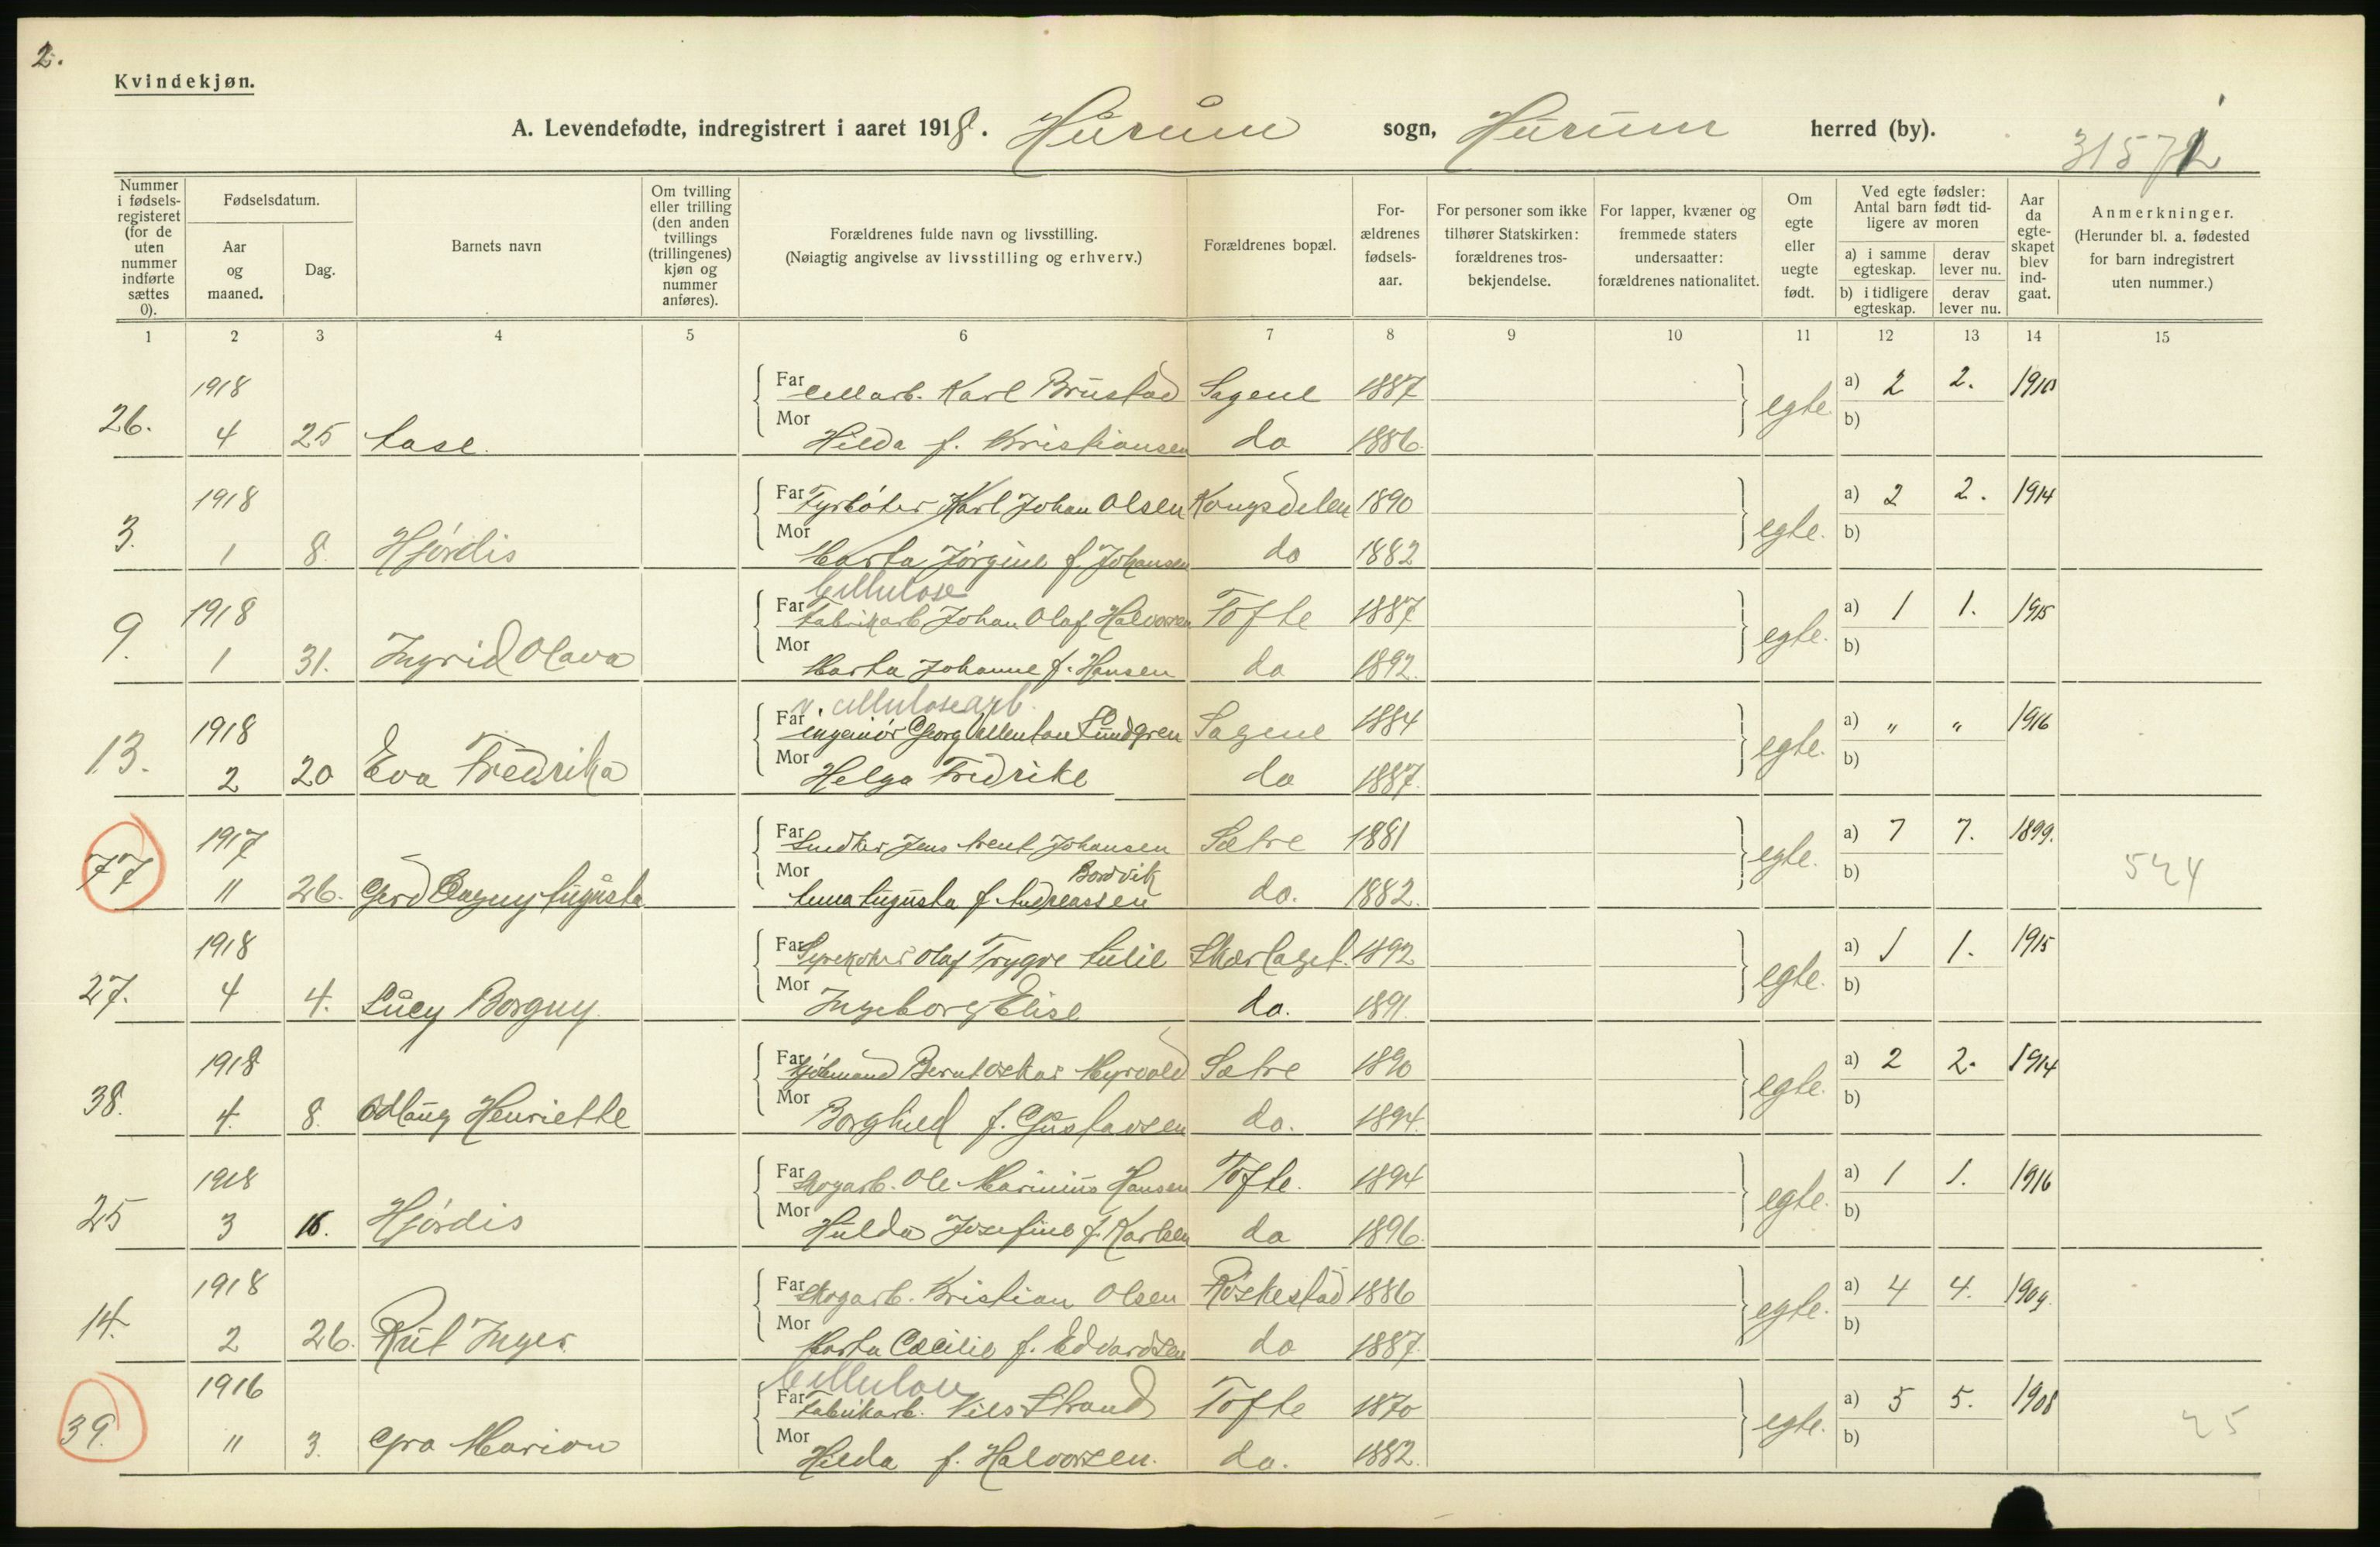 2.
Kvindekjøn.
A. Levendefødte, indregistrert i aaret 1918. Hurum sogn, Hurum herred (by).
3157
Nummer i fødsels-registeret (for de uten nummer indførte sættes 0).
Fødselsdatum.
Aar og maaned.
Dag.
Barnets navn
Om tvilling eller trilling (den anden tvillings (trillingenes) kjøn og nummer anføres).
Forældrenes fulde navn og livsstilling.
(Nøiagtig angivelse av livsstilling og erhverv.)
Forældrenes bopæl.
For-ældrenes fødsels-aar.
For personer som ikke tilhører Statskirken: forældrenes tros-bekjendelse.
For lapper, kvæner og fremmede staters undersaatter: forældrenes nationalitet.
Om egte eller uegte født.
Ved egte fødsler: Antal barn født tid-ligere av moren
a) i samme egteskap.
derav lever nu.
b) i tidligere egteskap.
derav lever nu.
Aar da egte-skapet blev ind-gaat.
Anmerkninger.
(Herunder bl. a. fødested for barn indregistrert uten nummer.)
1 2 3 4 5 6 7 8 9 10 11 12 13 14 15
1918 Far Cellarb. Karl Brustad Sagene 1887 a) 2 2. 1910
26. 4 25 Aase. Mor Hilda f. Kristiansen do 1886. egte. b)
1918 Far Fyrbøter Karl Johan Olsen Kongsdelen 1890 a) 2 2. 1914
3. 1 8. Hjórdis Mor Marta Jørgine f. Johansen do 1882 egte. b)
Cellulose
1918 Far Fabrikarb Johan Olaf Halvorsen Tofte 1887 a) 1 1. 1915
9. 1 31. Ingrid Olava Mor Marta Johanne f. Hansen do 1892. egte. b)
v. cellulosearb.
1918 Far ingeniör Georg Lundgren Sagene 1884 a) " " 1916
13. 2 20 Eva Fredrika Mor Helga Fredrike do 1887. egte. b)
1917 Far Snedker Jens Arent Johansen Sætre 1881 a) 7 7. 1899.
Bordvik
77 11 26. Gerd Dagny Augusta Mor Anna Augusta f. Andreassen do. 1882. egte. b) 524
1918 Far Syrekoker Olaf Trygve Lulie 1892 a) 1 1. 1915
27. 4 4. Lucy Borgny. Mor Ingeborg Elise do. 1891. egte. b)
1918 Far Bernt Oskar Myrvold Sætre 1890 a) 2 2. 1914
38. 4. 8. Odlaug Henriette Mor Borghild f. Gustavsen do. 1894. egte. b)
1918 Far Skogarb. Ole Marinius Hansen Tofte. 1894 a) 1 1. 1916
25 3 16. Hjórdis Mor Hulda Josefine f. Karlsen do 1896. egte. b)
1918 Far Skogarb. Kristian Olsen Röskestad 1886 a) 4 4. 1909.
14. 2 26. Rut Inger Mor Marta Cæcilie f. Edvardsen do 1887. egte. b)
Cellulose
1916 Far Fabrikarb. Nils Strand Tofte 1870 a) 5 5. 1908
39. 11 3. Gra Marion Mor Hilda f. Halvorsen. do. 1882. egte. b) 25